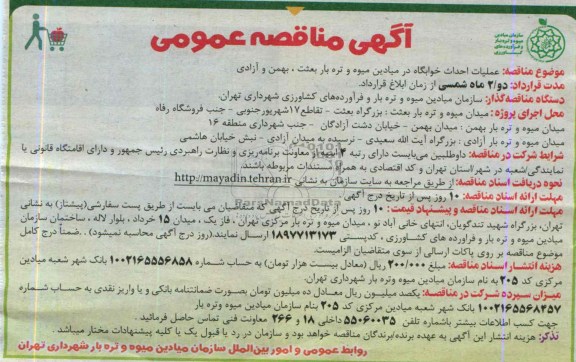 آگهی مناقصه عمومی
سازمان میادین
میوه و تره بار
و فرآورده های
کشاورزی
موضوع مناقصه: عملیات احداث خوابگاه در میادین میوه و تره بار بعثت ، بهمن و آزادی
مدت قرارداد: دو/۲ ماه شمسی از زمان ابلاغ قرارداد.
دستگاه مناقصه‌گذار: سازمان میادین میوه و تره بار و فرآورده‌های کشاورزی شهرداری تهران.
محل اجرای پروژه: میدان میوه و تره بار بعثت : بزرگراه بعثت - تقاطع ۱۷شهریورجنوبی - جنب فروشگاه رفاه
میدان میوه و تره بار بهمن : میدان بهمن - خیابان دشت آزادگان - جنب شهرداری منطقه ۱۶
میدان میوه و تره بار آزادی : بزرگراه آیت الله سعیدی - نرسیده به میدان آزادی - نبش خیابان هاشمی
شرایط شرکت در مناقصه: داوطلبین می‌بایست دارای رتبه ۴ ابنیه از معاونت برنامه‌ریزی و نظارت راهبردی رئیس جمهور و دارای اقامتگاه قانونی یا
نمایندگی/شعبه در شهر/استان تهران و کد اقتصادی به همراه مستندات مربوطه باشند.
نحوه دریافت اسناد مناقصه: از طریق مراجعه به سایت سازمان به نشانی http://mayadin.tehran.ir
مهلت ارائه اسناد مناقصه: ۱۰ روز پس از تاریخ درج آگهی.
مهلت ارائه اسناد مناقصه و پیشنهاد قیمت: ۱۰ روز پس از تاریخ درج آگهی که متقاضیان می بایست از طریق پست سفارشی(پیشتاز) به نشانی
تهران، بزرگراه شهید تندگویان، انتهای خانی آباد نو ، میدان میوه و تره بار مرکزی تهران ، فاز یک ، میدان ۱۵ خرداد ، بلوار لاله ، ساختمان سازمان
میادین میوه و تره بار و فرآورده های کشاورزی ، کدپستی ۱۸۹۷۷۱۳۱۷۳ ارسال نمایند.(روز درج آگهی محاسبه نمیشود) . ضمناً درج کامل
موضوع مناقصه بر روی پاکات ارسالی از سوی متقاضیان الزامیست.
هزینه انتشار اسناد مناقصه: مبلغ ۲۰۰/۰۰۰ ریال (معادل بیست هزار تومان) به حساب شماره ۱۰۰۲۱۶۵۵۵۶۸۵۸ بانک شهر شعبه میادین
مرکزی کد ۲۰۵ به نام سازمان میادین میوه و تره بار شهرداری تهران.
میزان سپرده شرکت در مناقصه: یکصد میلیون ریال معادل ده میلیون تومان بصورت ضمانتنامه بانکی و یا واریز نقدی به حساب شماره
۱۰۰۲۱۶۵۵۶۸۲۵۷ بانک شهر شعبه میادین مرکزی کد ۲۰۵ بنام سازمان میادین میوه وتره بار
جهت کسب اطلاعات بیشتر باشماره تلفن ۵۵۰۶۰۰۳۵ داخلی ۱۸ و ۲۶۶ معاونت فنی تماس حاصل فرمائید .
تذکر: هزینه انتشار این آگهی به عهده برنده/برندگان مناقصه خواهد بود و سازمان در رد یا قبول یک یا کلیه پیشنهادات مختار میباشد .
روابط عمومی و امور بین‌الملل سازمان میادین میوه و تره بار شهرداری تهران